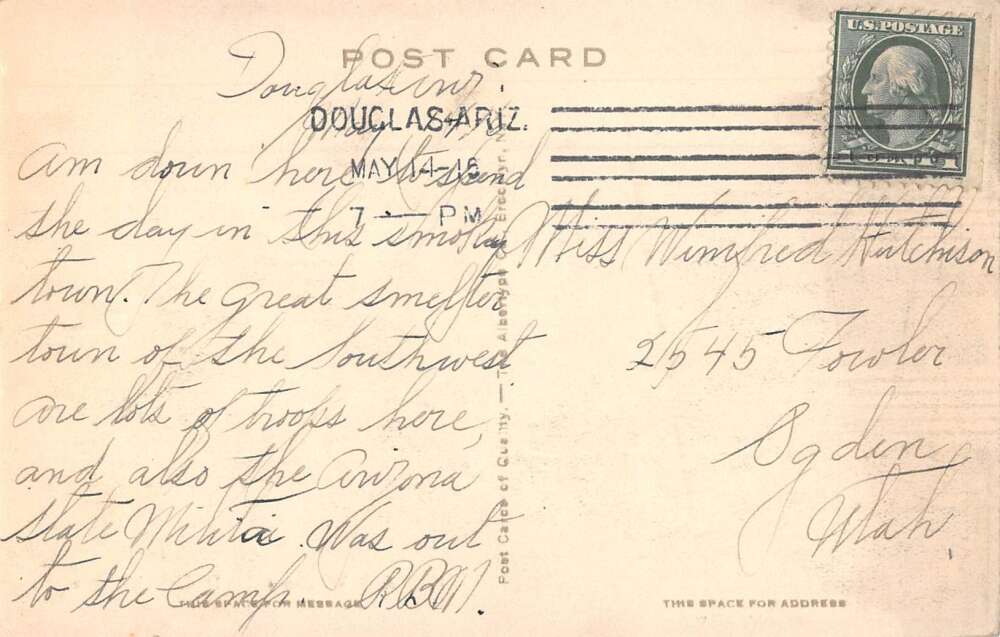 POST CARD
U.S. POSTAGE
DOUGLAS ARIZ.
MAY 14-16
7 — PM
Douglas
am down here to spend
the day in this smoky
town. The great smelter
town of the Southwest
are lots of troops here,
and also the Arizona
State Militia. Was out
to the Camp.
Miss Winifred Hutchison
2545 Fowler
Ogden
Utah
Post Cards of Quality. — The Albertype Co.
THIS SPACE FOR MESSAGE
THIS SPACE FOR ADDRESS